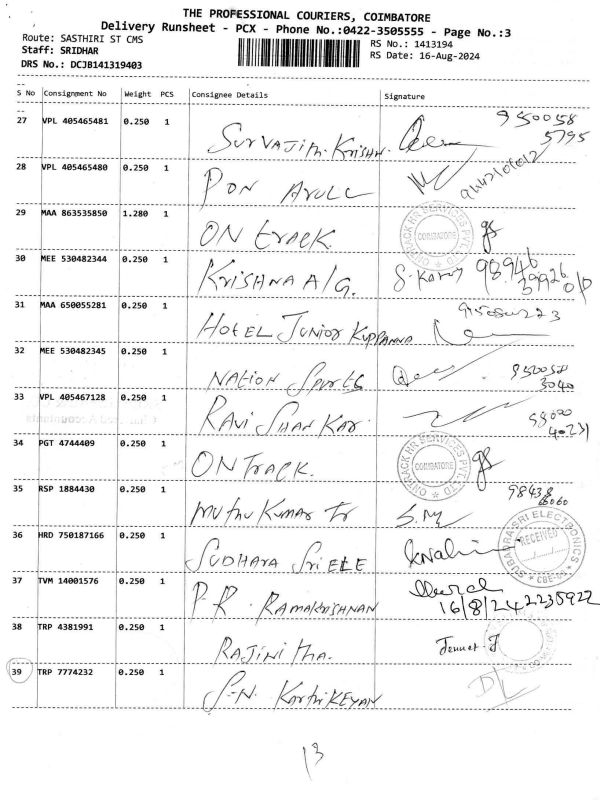 THE PROFESSIONAL COURIERS, COIMBATORE
Delivery Runsheet - PCX - Phone No.:0422-3505555 - Page No.:3
Route: SASTHIRI ST CMS
RS No.: 1413194
Staff: SRIDHAR
RS Date: 16-Aug-2024
DRS No.: DCJB141319403
S No Consignment No Weight PCS Consignee Details Signature
27 VPL 405465481 0.250 1 Survajith. Krishn.
28 VPL 405465480 0.250 1 PON ARULL
29 MAA 863535850 1.280 1 ON track. ONTRACK HR SERVICES PVT. LTD COIMBATORE
30 MEE 530482344 0.250 1 Krishna A/G.
31 MAA 650055281 0.250 1 Hotel Junior Kuppanna
32 MEE 530482345 0.250 1 Nation Sports
33 VPL 405467128 0.250 1 Ravi Shankar
34 PGT 4744409 0.250 1 ON Track. ONTRACK HR SERVICES PVT. LTD COIMBATORE
35 RSP 1884430 0.250 1 Muthu Kumar Tr
36 HRD 750187166 0.250 1 Sudhara Sri ELE SUBADRA SRI ELECTRONICS RECEIVED CBE
37 TVM 14001576 0.250 1 P.R. Ramakrishnan 16/8/24
38 TRP 4381991 0.250 1 Rajinitha.
39 TRP 7774232 0.250 1 S.N. Karthikeyan
13